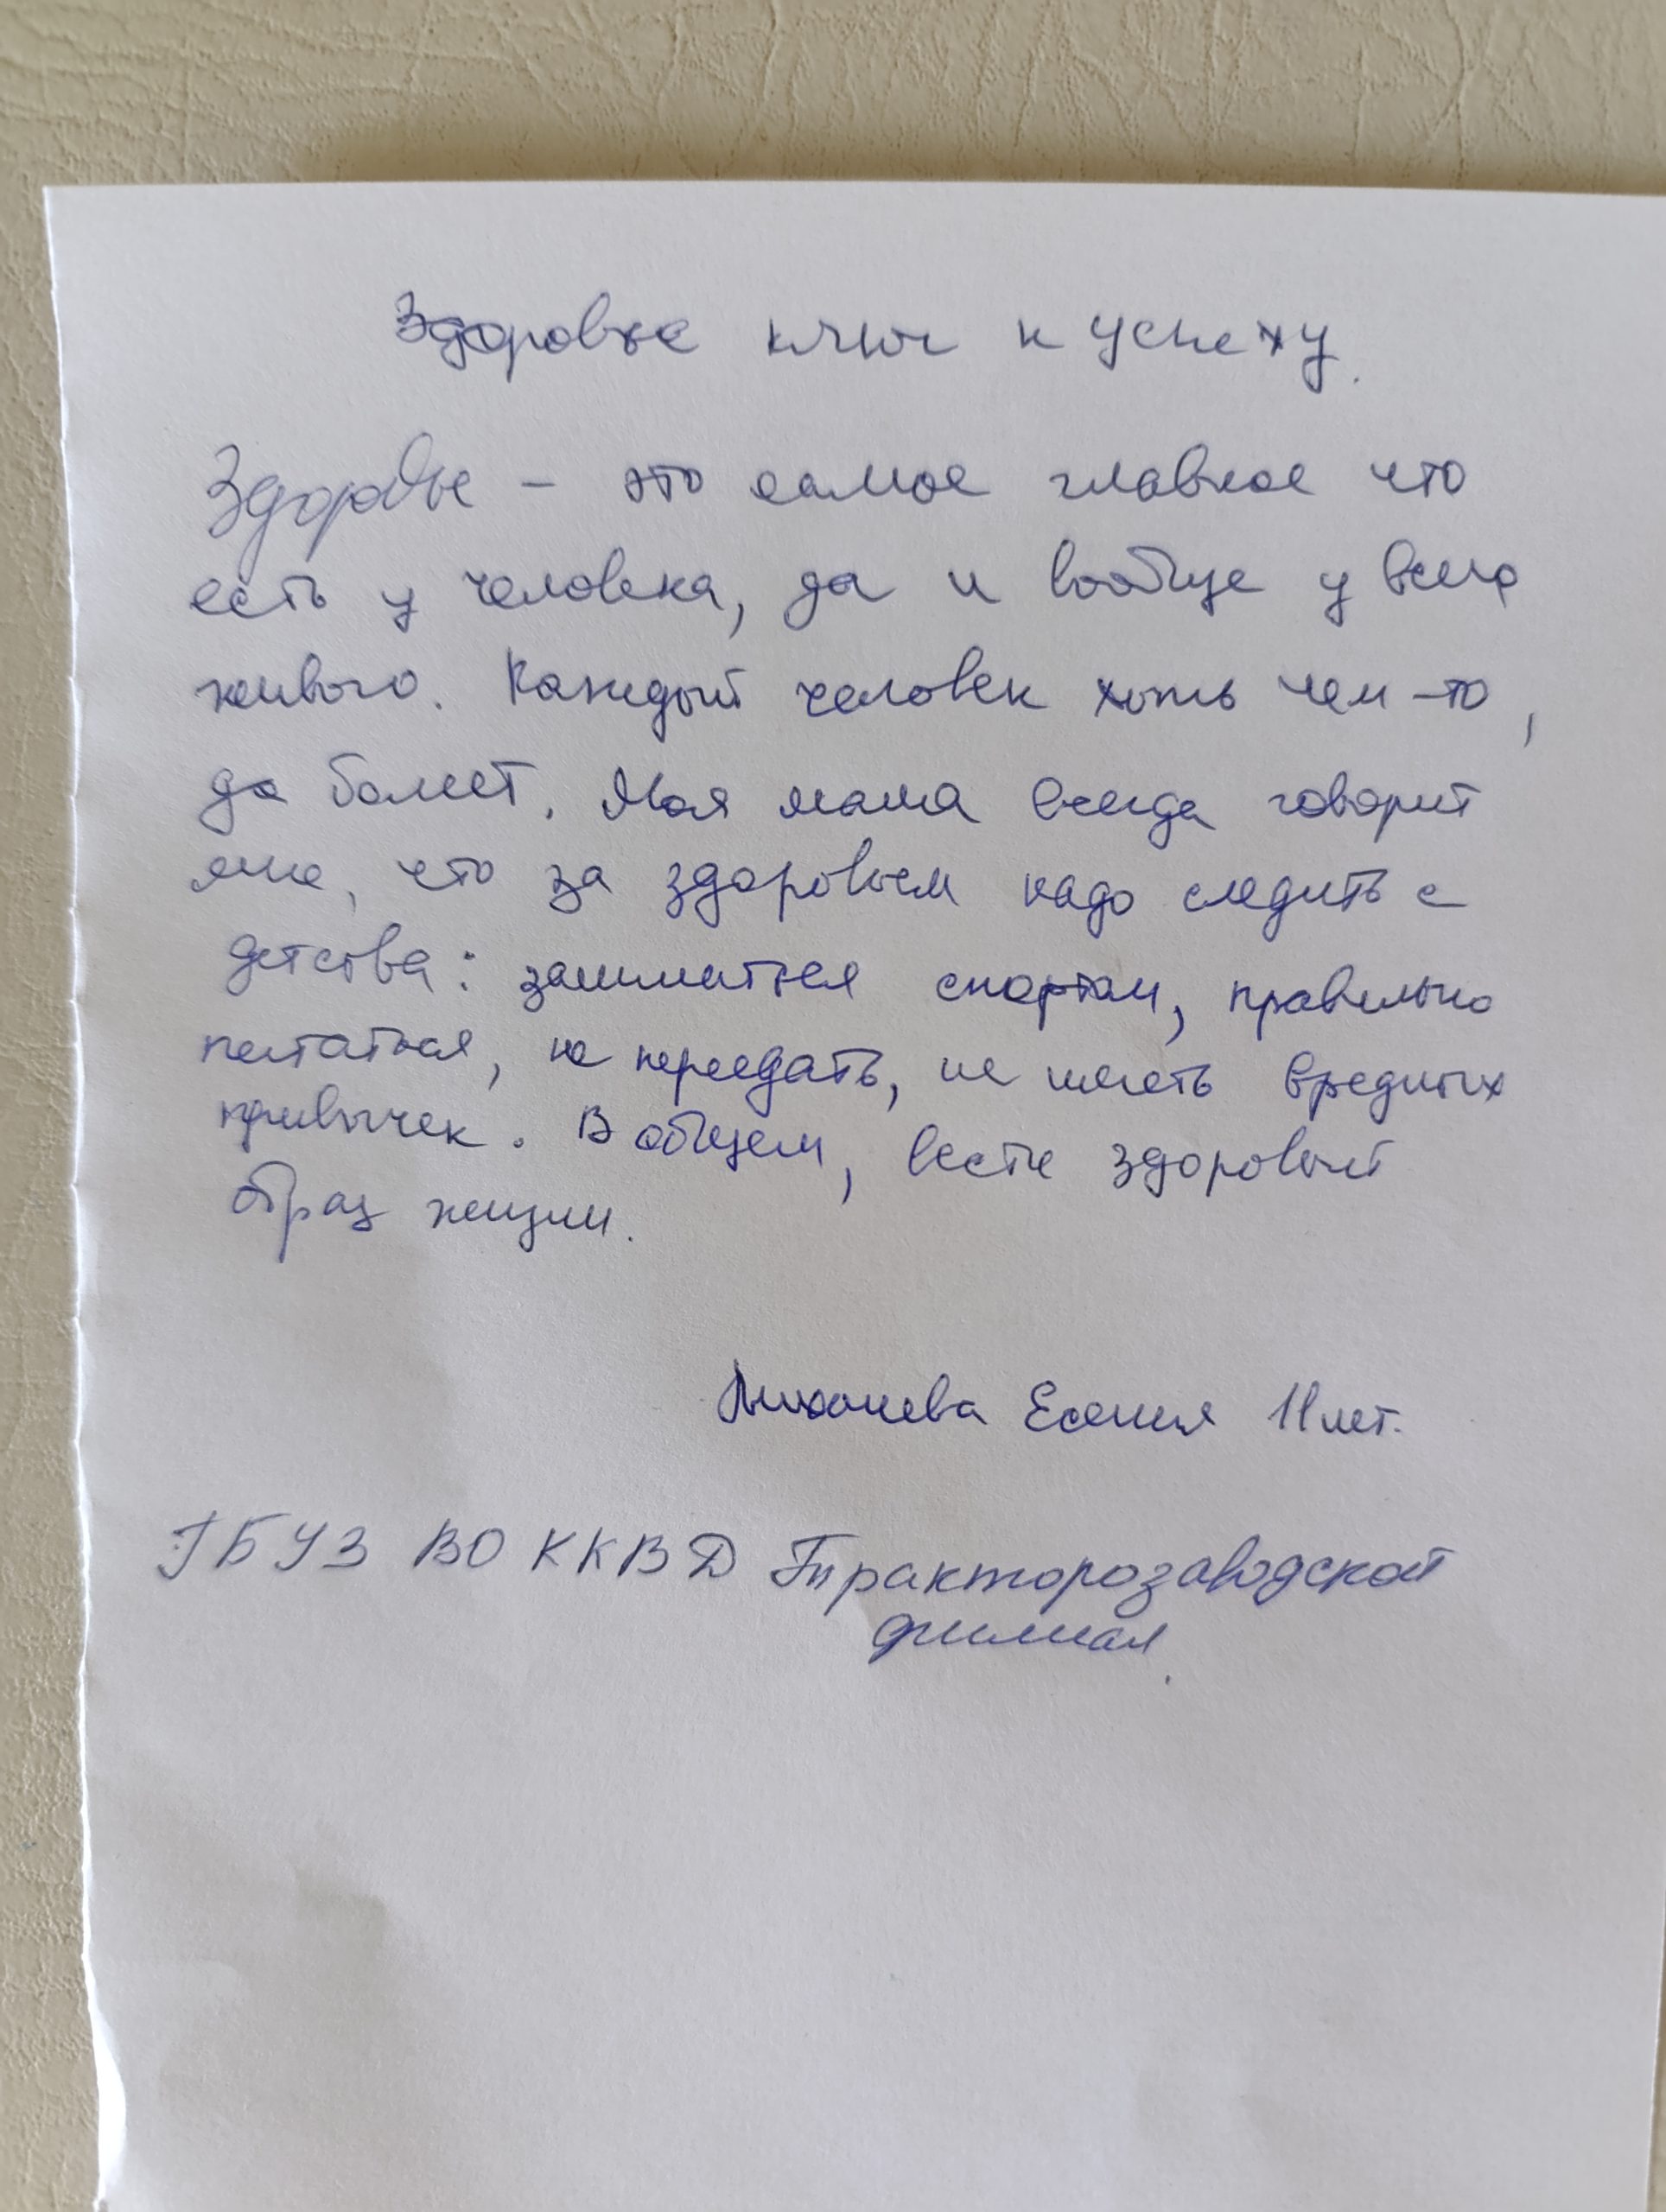 Здоровье ключ к успеху.
Здоровье - это самое главное что
есть у человека, да и вообще у всего
живого. Каждый человек хоть чем-то,
да болеет. Моя мама всегда говорит
мне, что за здоровьем надо следить с
детства: заниматься спортом, правильно
питаться, не переедать, не иметь вредных
привычек. В общем, вести здоровый
образ жизни.
Есения 11 лет.
ГБУЗ ВО ККВД Тракторозаводской
филиал.